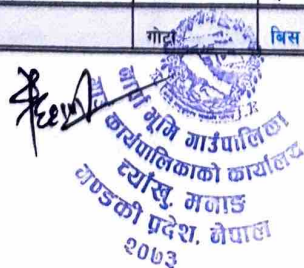 गोटा बिस
नार्पा भूमि गाउँपालिका
गाउँ कार्यपालिकाको कार्यालय
च्याखु, मनाङ
गण्डकी प्रदेश, नेपाल
२०७३